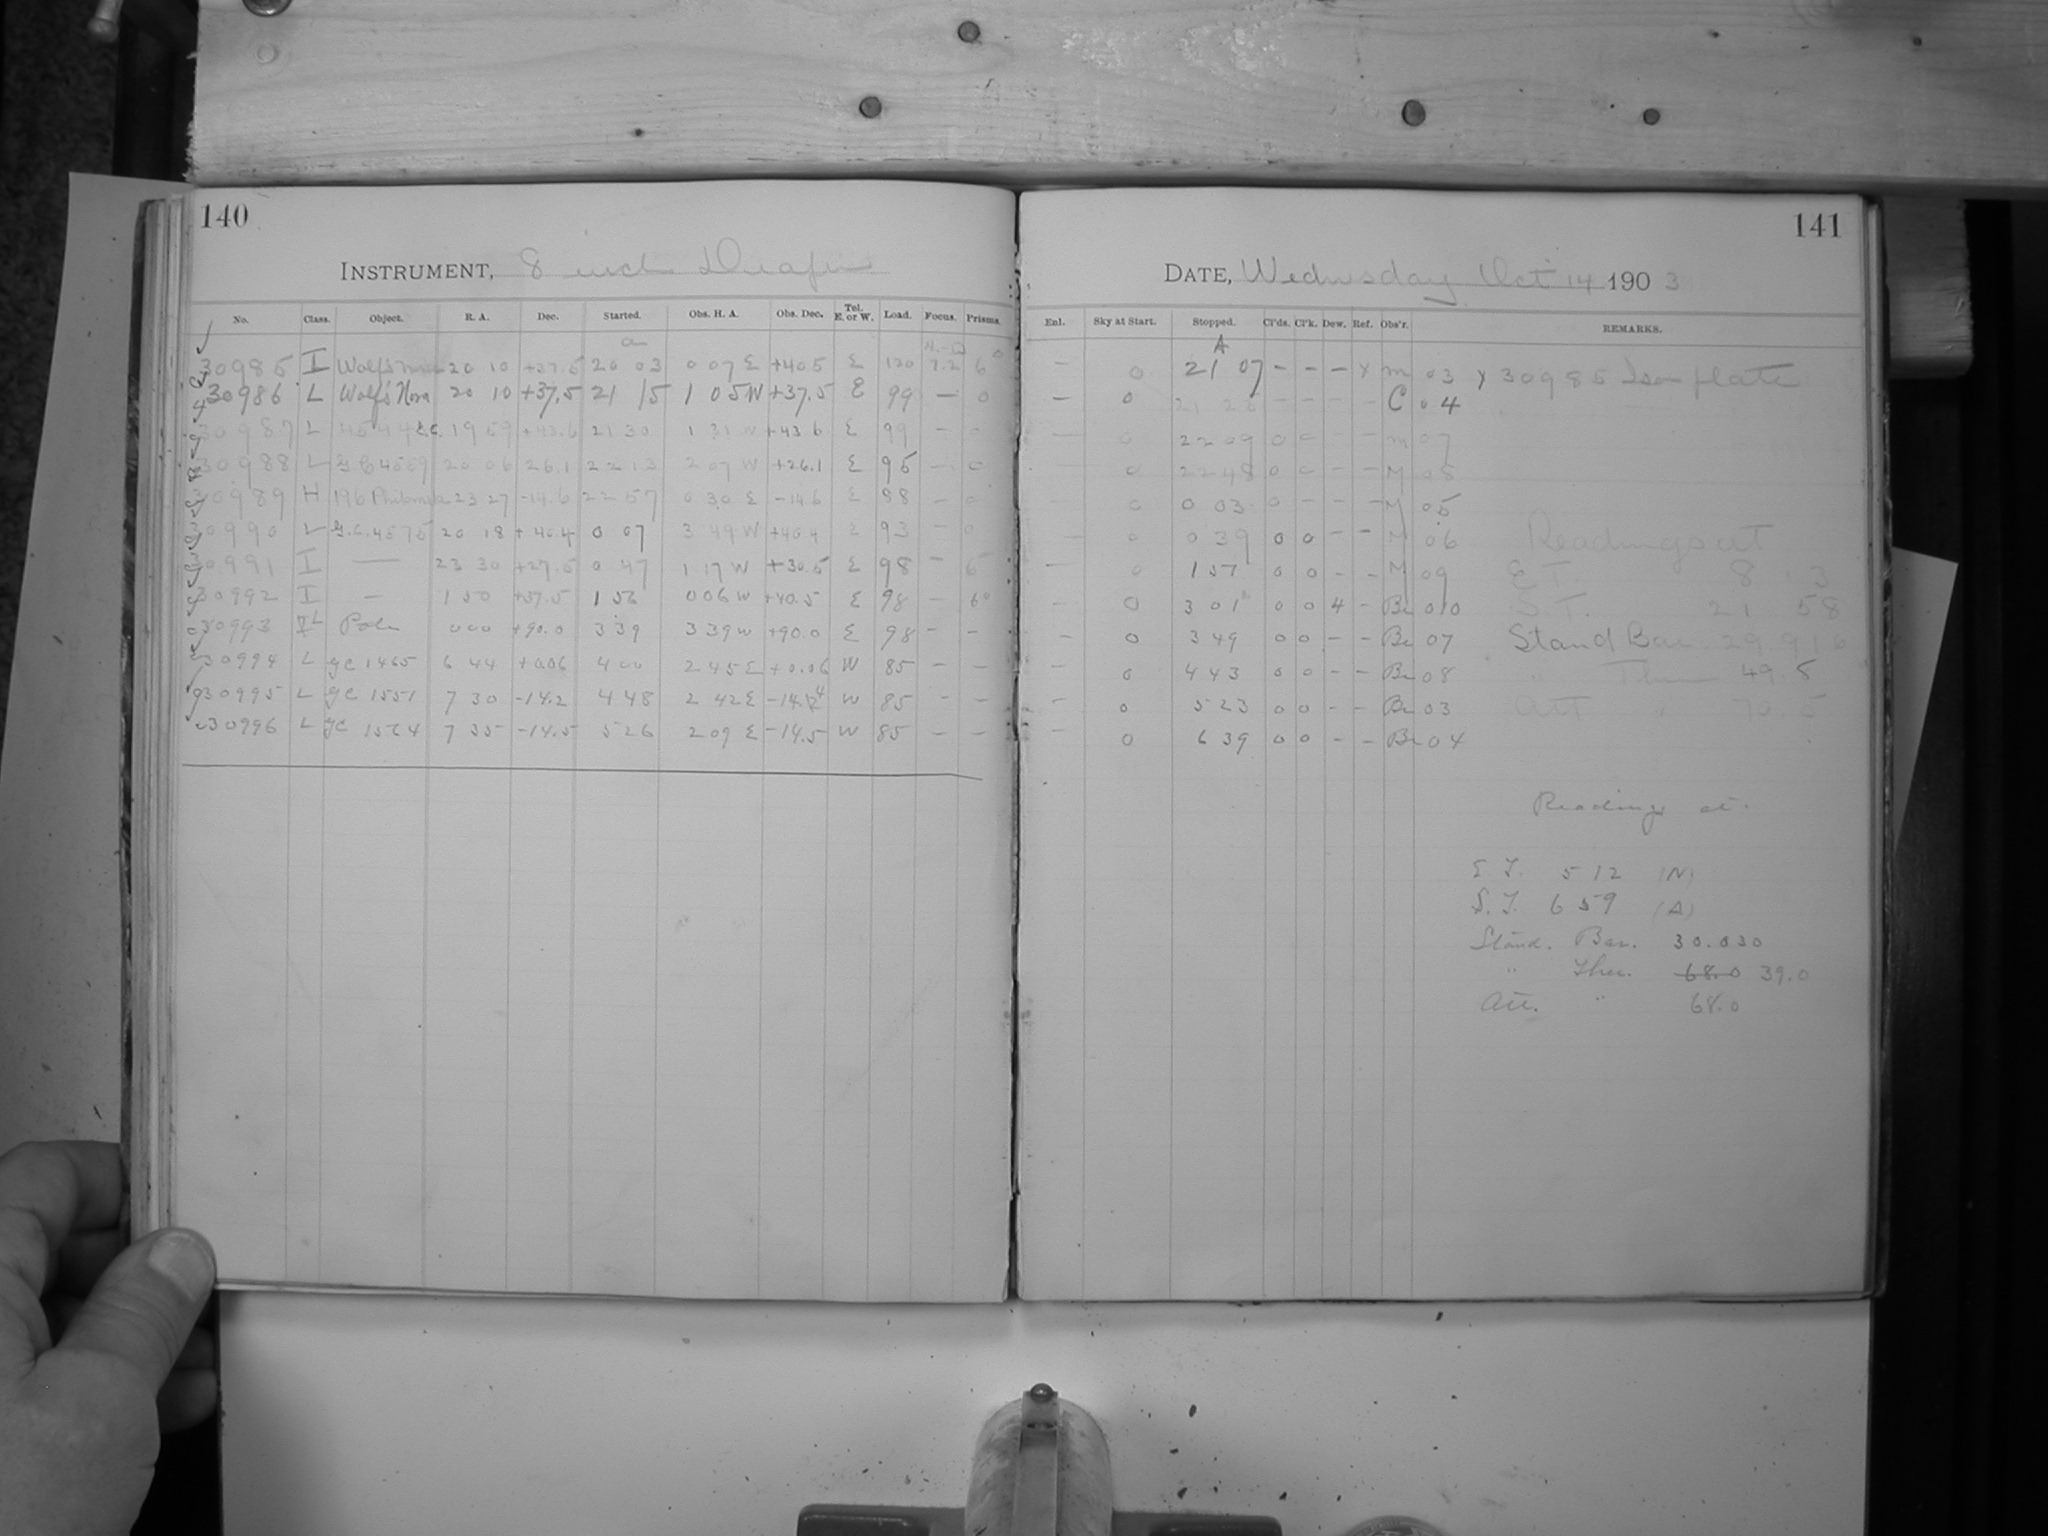 140
INSTRUMENT, 8 inch Draper
No. Class. Object. R. A. Dec. Started. Obs. H. A. Obs. Dec. Tel. E. or W. Load. Focus. Prisms.
30985 I Wolf's Nova 20 10 +37.5 20 03 0 07 E +40.5 E 130 7.2 6°
30986 L Wolf's Nova 20 10 +37.5 21 15 1 05 W +37.5 E 99 — 0
30987 L 19 59 +43.6 21 30 1 31 W +43.6 E 99 — 0
30988 L G.C. 4559 20 06 26.1 22 13 2 07 W +26.1 E 95 — 0
30989 H 196 Philomela 23 27 -14.6 22 57 0 30 E -14.6 E 88 — 0
30990 L G.C. 4575 20 18 +40.4 0 07 3 49 W +40.4 E 93 — 0
30991 I — 23 30 +27.5 0 47 1 17 W +30.5 E 98 — 6
30992 I — 1 50 +37.5 1 56 0 06 W +40.5 E 98 — 6°
30993 L Pole 0 00 +90.0 3 39 3 39 W +90.0 E 98 — —
30994 L GC 1465 6 44 +0.06 4 00 2 45 E +0.06 W 85 — —
30995 L GC 1551 7 30 -14.2 4 48 2 42 E -14.2 W 85 — —
30996 L GC 1564 7 35 -14.5 5 26 2 09 E -14.5 W 85 — —
141
DATE, Wednesday Oct 14 1903
Enl. Sky at Start. Stopped. Cl'ds. Cl'k. Dew. Ref. Obs'r. REMARKS.
A
— 0 21 07 — — — x M 03 x 30985 Ison plate
— 0 21 26 — — — — C 04
— 0 22 09 0 0 — — M 07
— 0 22 48 0 0 — — M 08
— 0 0 03 0 — — — M 05
— 0 0 39 0 0 — — M 06 Readings at
— 0 1 57 0 0 — — M 09 E T. 8 13
— 0 3 01 0 0 4 — Br 010 S. T. 21 58
— 0 3 49 0 0 — — Br 07 Stand Bar. 29.916
— 0 4 43 0 0 — — Br 08 " Ther 49.5
— 0 5 23 0 0 — — Br 03 Att " 70.5
— 0 6 39 0 0 — — Br 04
Readings at.
E T. 5 12 (N)
S. T. 6 59 (A)
Stand. Bar. 30.030
" Ther. 68.0 39.0
Att. " 68.0